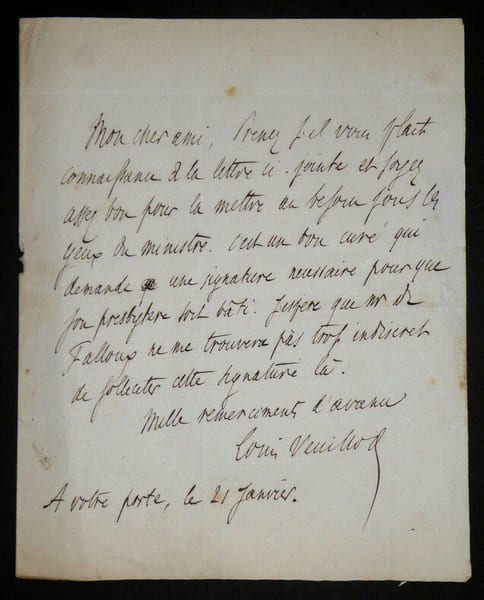 Mon cher ami, Prenez s'il vous plait
connaissance de la lettre ci-jointe et soyez
assez bon pour la mettre au besoin sous les
yeux du ministre. C'est un bon curé qui
demande une signature necessaire pour que
son presbytère soit bâti. J'espere que Mr de
Falloux ne me trouvera pas trop indiscret
de solliciter cette signature là.
Mille remerciments d'avance
Louis Veuillot
A votre porte, le 21 Janvier.